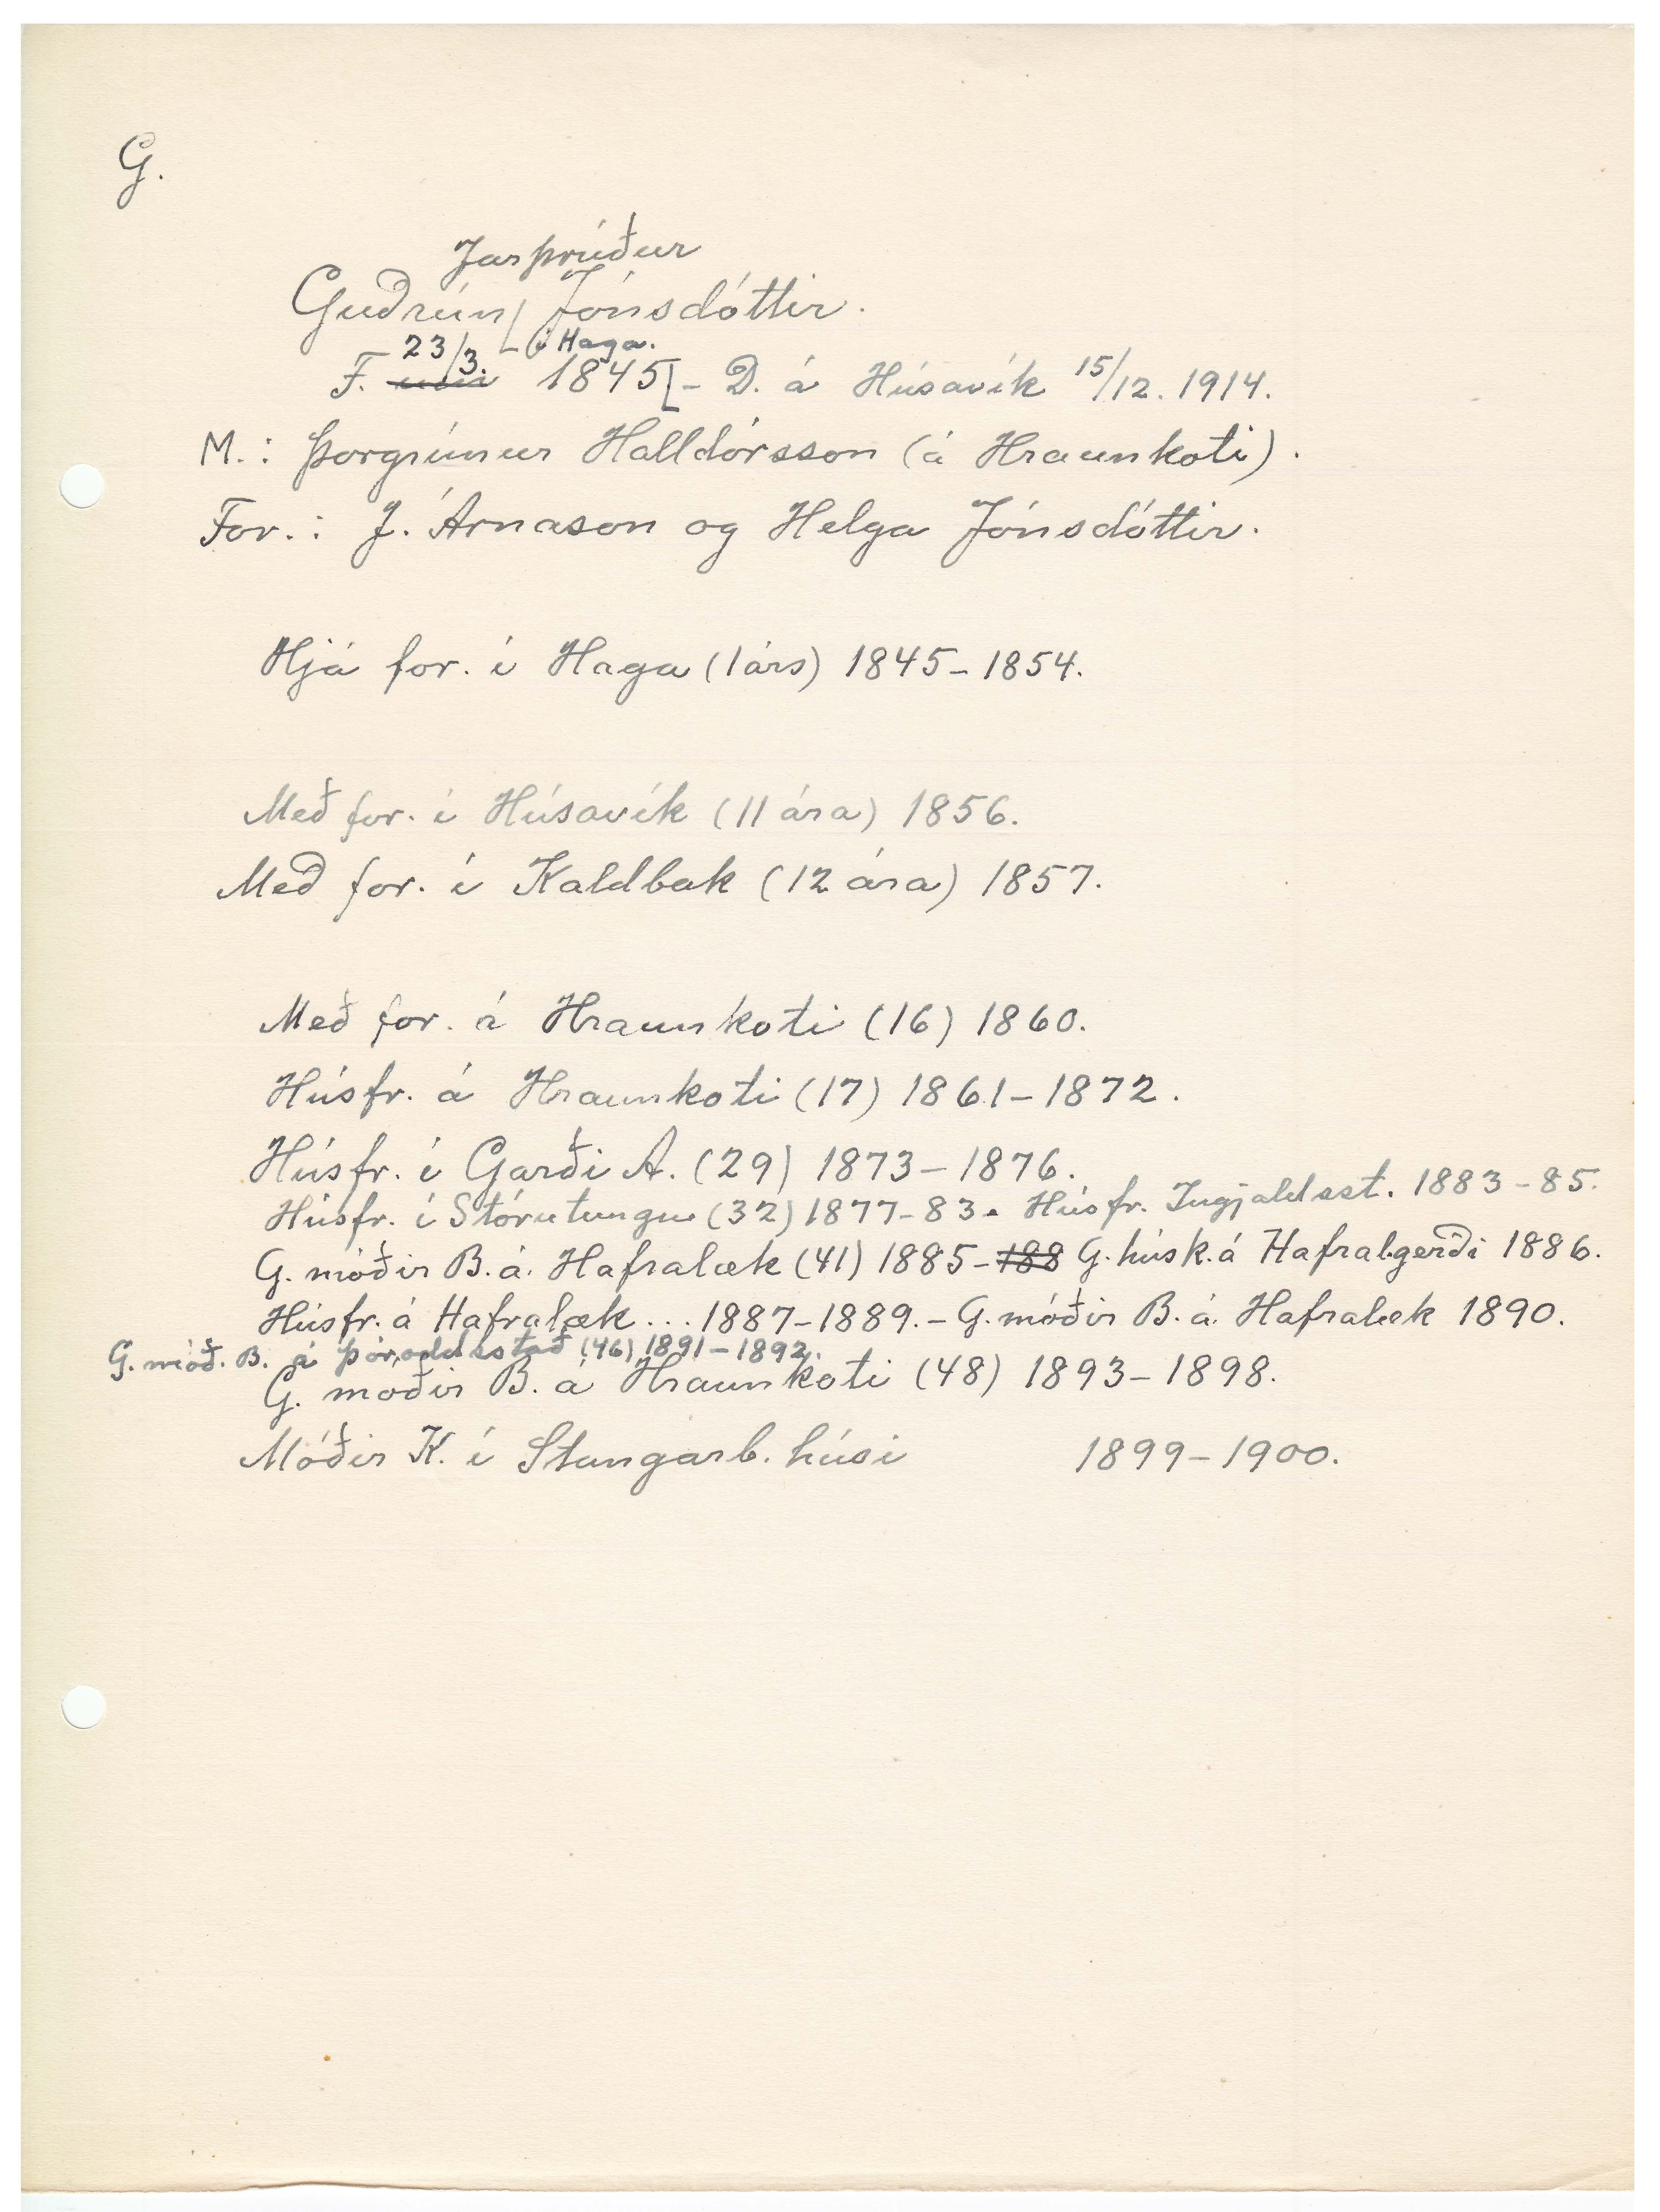 G.
Jarþrúður
Guðrún Jónsdóttir.
23/3. - í Haga.
F. 1845 - D. á Húsavík 15/12. 1914.
M.: Þorgrímur Halldórsson (á Hraunkoti).
For.: J. Árnason og Helga Jónsdóttir.
Hjá for. í Haga (1 árs) 1845-1854.
Með for. í Húsavík (11 ára) 1856.
Með for. í Kaldbak (12 ára) 1857.
Með for. á Hraunkoti (16) 1860.
Húsfr. á Hraunkoti (17) 1861-1872.
Húsfr. í Garði A. (29) 1873-1876.
Húsfr. í Stórutungu (32) 1877-83. Húsfr. Ingjaldsst. 1883-85.
G. móðir B. á. Hafralæk (41) 1885- 188 G. húsk. á Hafral.gerði 1886.
Húsfr. á Hafralæk ... 1887-1889. - G. móðir B. á. Hafralæk 1890.
G. móð. B. á Þóroddsstað (46) 1891-1892.
G. móðir B. á Hraunkoti (48) 1893-1898.
Móðir K. í Stangarb. húsi 1899-1900.